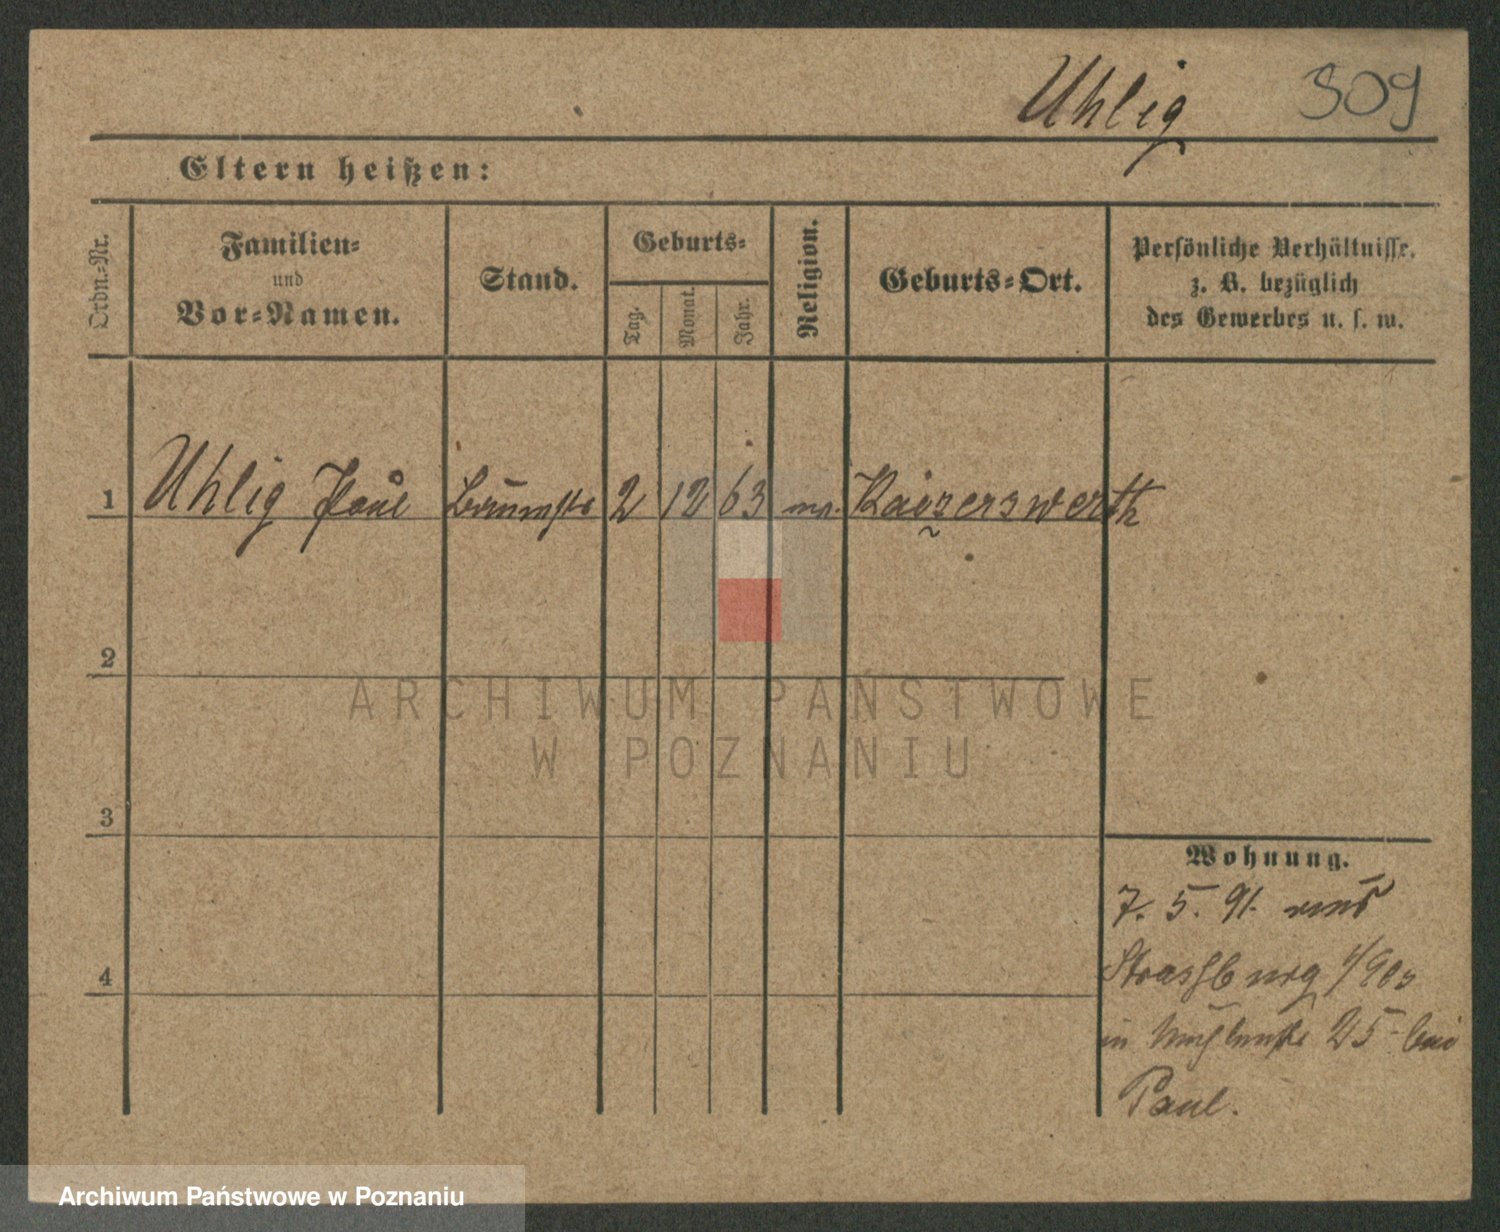 Uhlig 309
Eltern heißen:
Ordn.-Nr.
Familien-
und
Vor-Namen.
Stand.
Geburts-
Tag.
Monat.
Jahr.
Religion.
Geburts-Ort.
Persönliche Verhältnisse.
z. B. bezüglich
des Gewerbes u. s. w.
1 Uhlig Paul 2 12 63 Kaiserswerth
2
ARCHIWUM PAŃSTWOWE
W POZNANIU
3
Wohnung.
7. 5. 91. aus
4
Strassburg
in 25 bei
Paul.
Archiwum Państwowe w Poznaniu